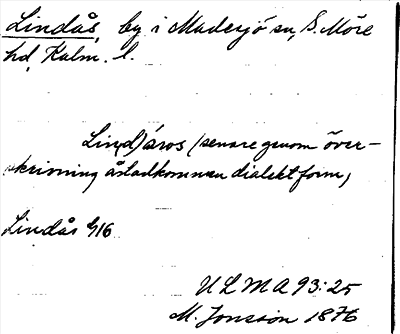 Lindås, by i Madesjö sn, S. Möre
hd, Kalm. l.
Lin(d)åros (senare genom över-
skrivning åstadkommen dialektform)
Lindås 4/16
ULMA 93:25
M. Jonsson 1876